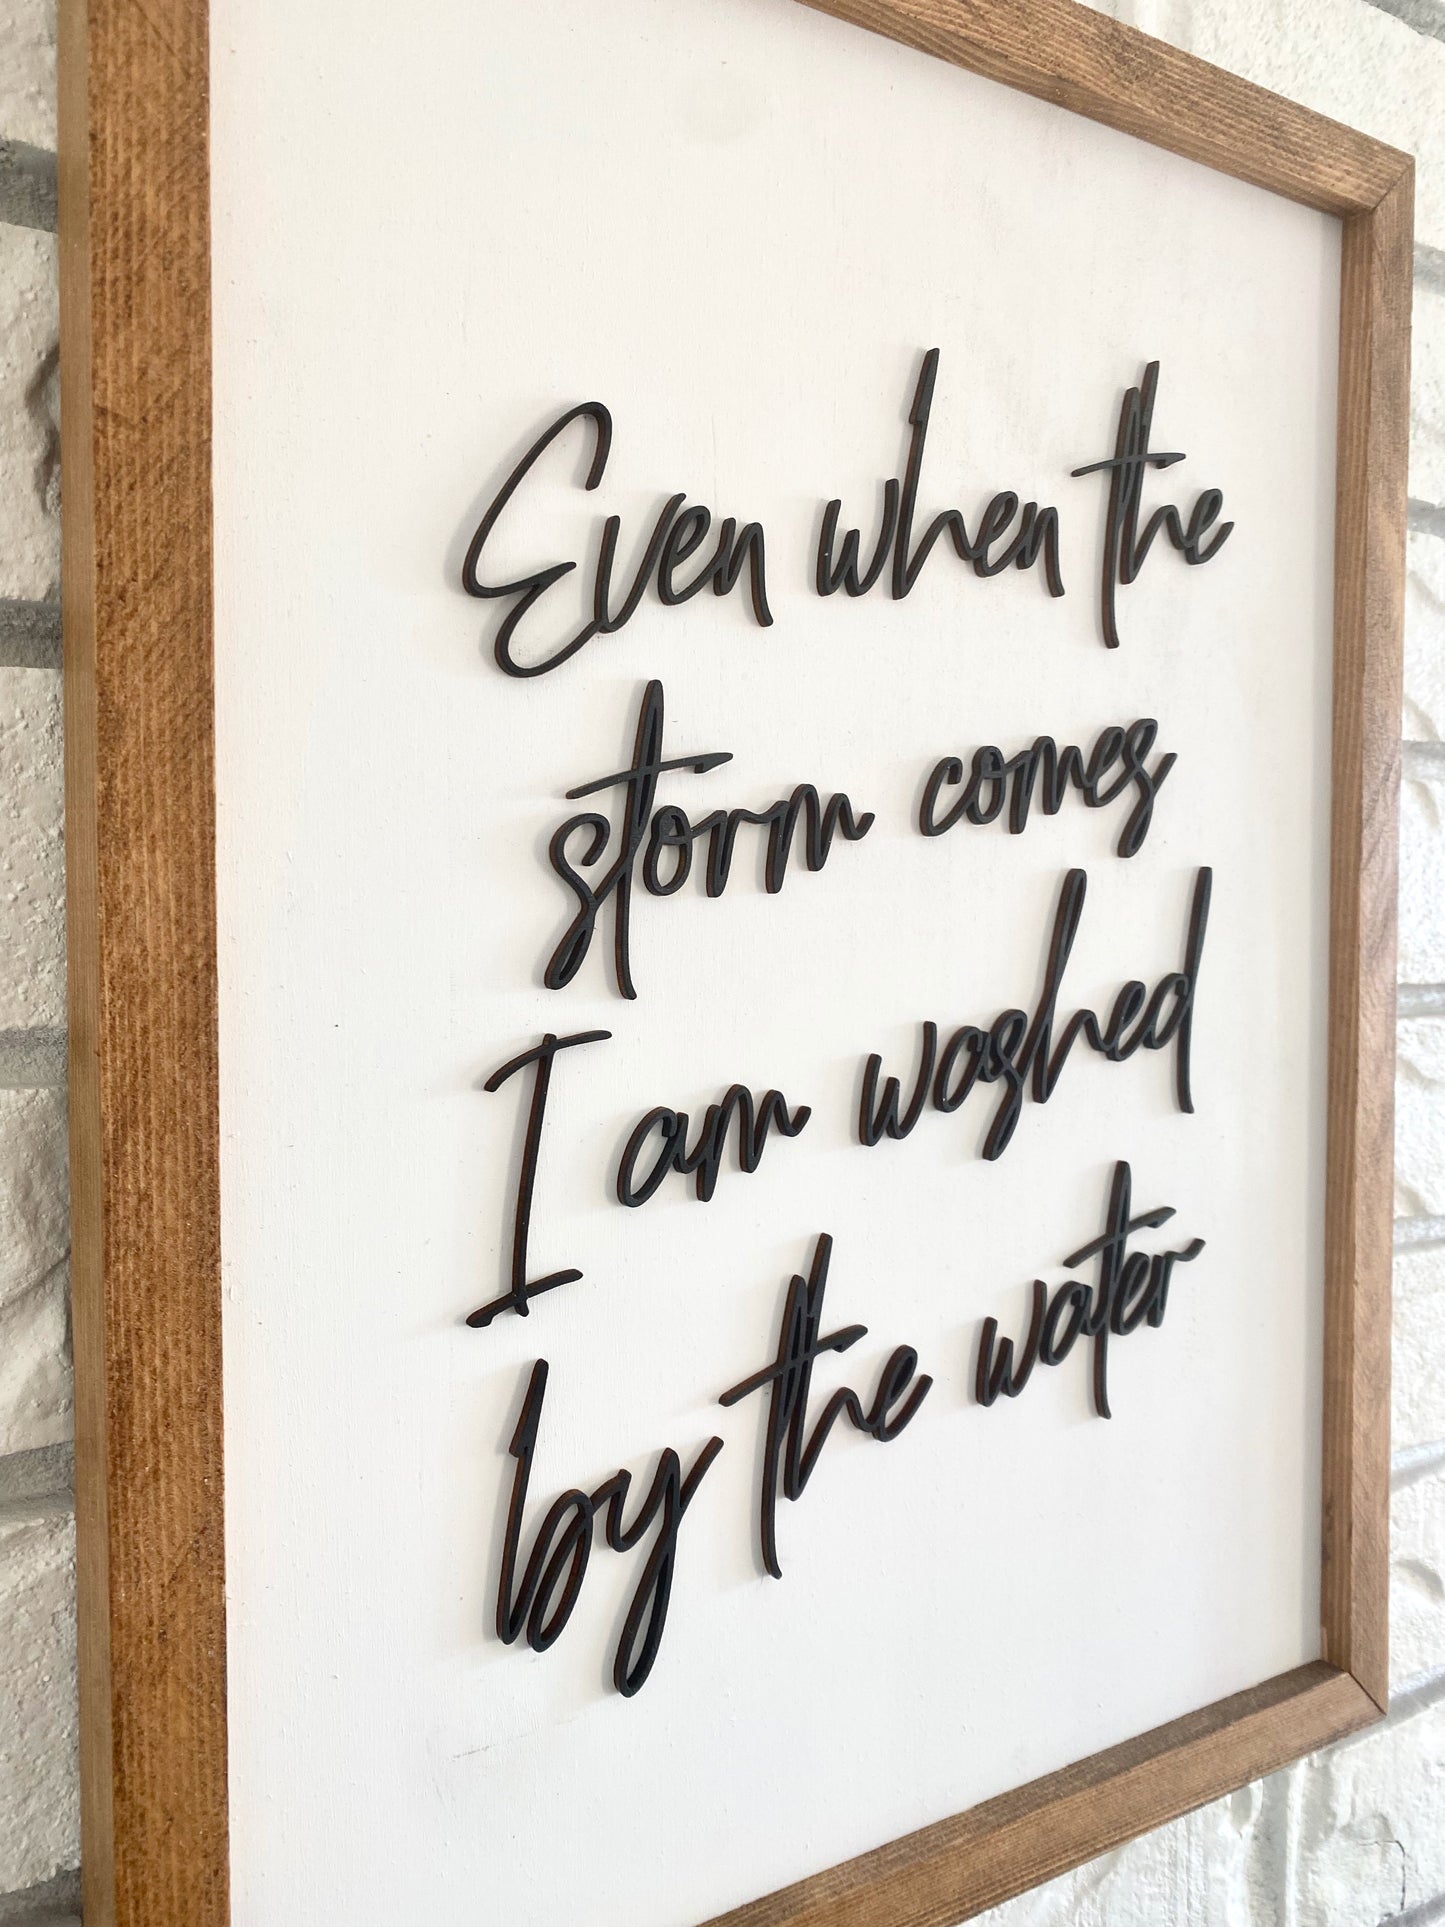 Even when the
storm comes
I am washed
by the water